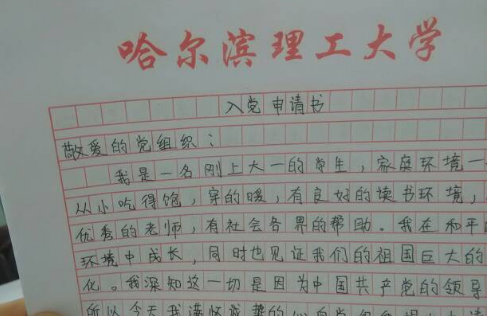 哈尔滨理工大学
入党申请书
敬爱的党组织：
我是一名刚上大一的学生，家庭环境一
从小吃得饱，穿的暖，有良好的读书环境，
优秀的老师，有社会各界的帮助。我在和平
环境中成长，同时也见证我们的祖国巨大的
化。我深知这一切是因为中国共产党的领导
所以今天我满怀